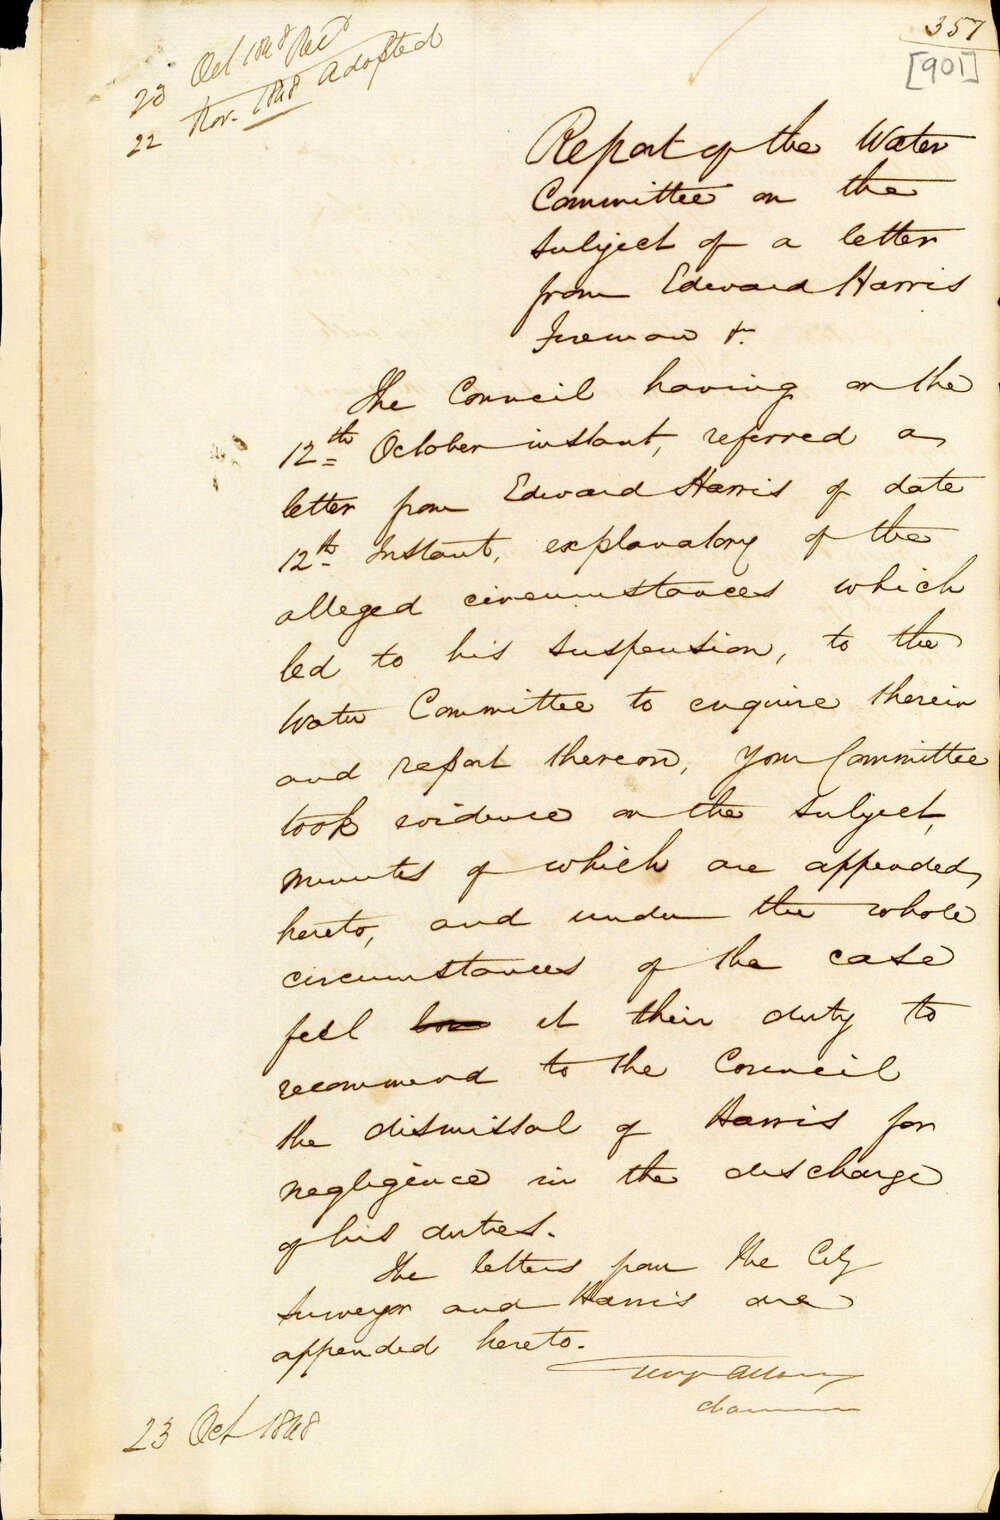 357
[901]
23 Oct 1848 Recd
22 Nov. 1848 Adopted
Report of the Water
Committee on the
subject of a letter
from Edward Harris
Fireman &c.
The Council having on the
12th October instant, referred a
letter from Edward Harris of date
12th Instant, explanatory of the
alleged circumstances which
led to his suspension, to the
Water Committee to enquire therein
and report thereon, Your Committee
took evidence on the subject,
minutes of which are appended
hereto, and under the whole
circumstances of the case
feel it their duty to
recommend to the Council
the dismissal of Harris for
negligence in the discharge
of his duties.
The letters from the City
Surveyor and Harris are
appended hereto.
Chairman
23 Oct 1848